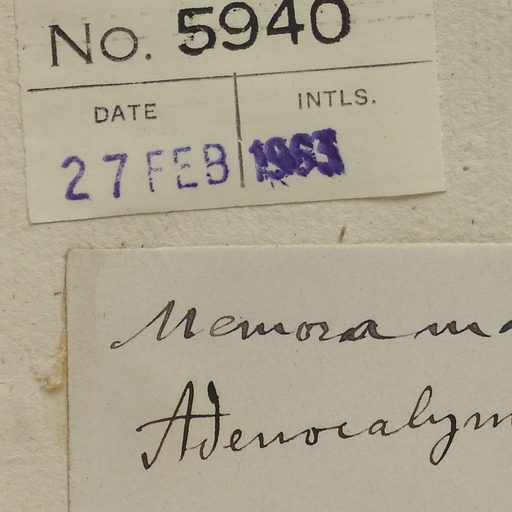 No. 5940
DATE INTLS.
27 FEB 1963
Memora
Adenocalym